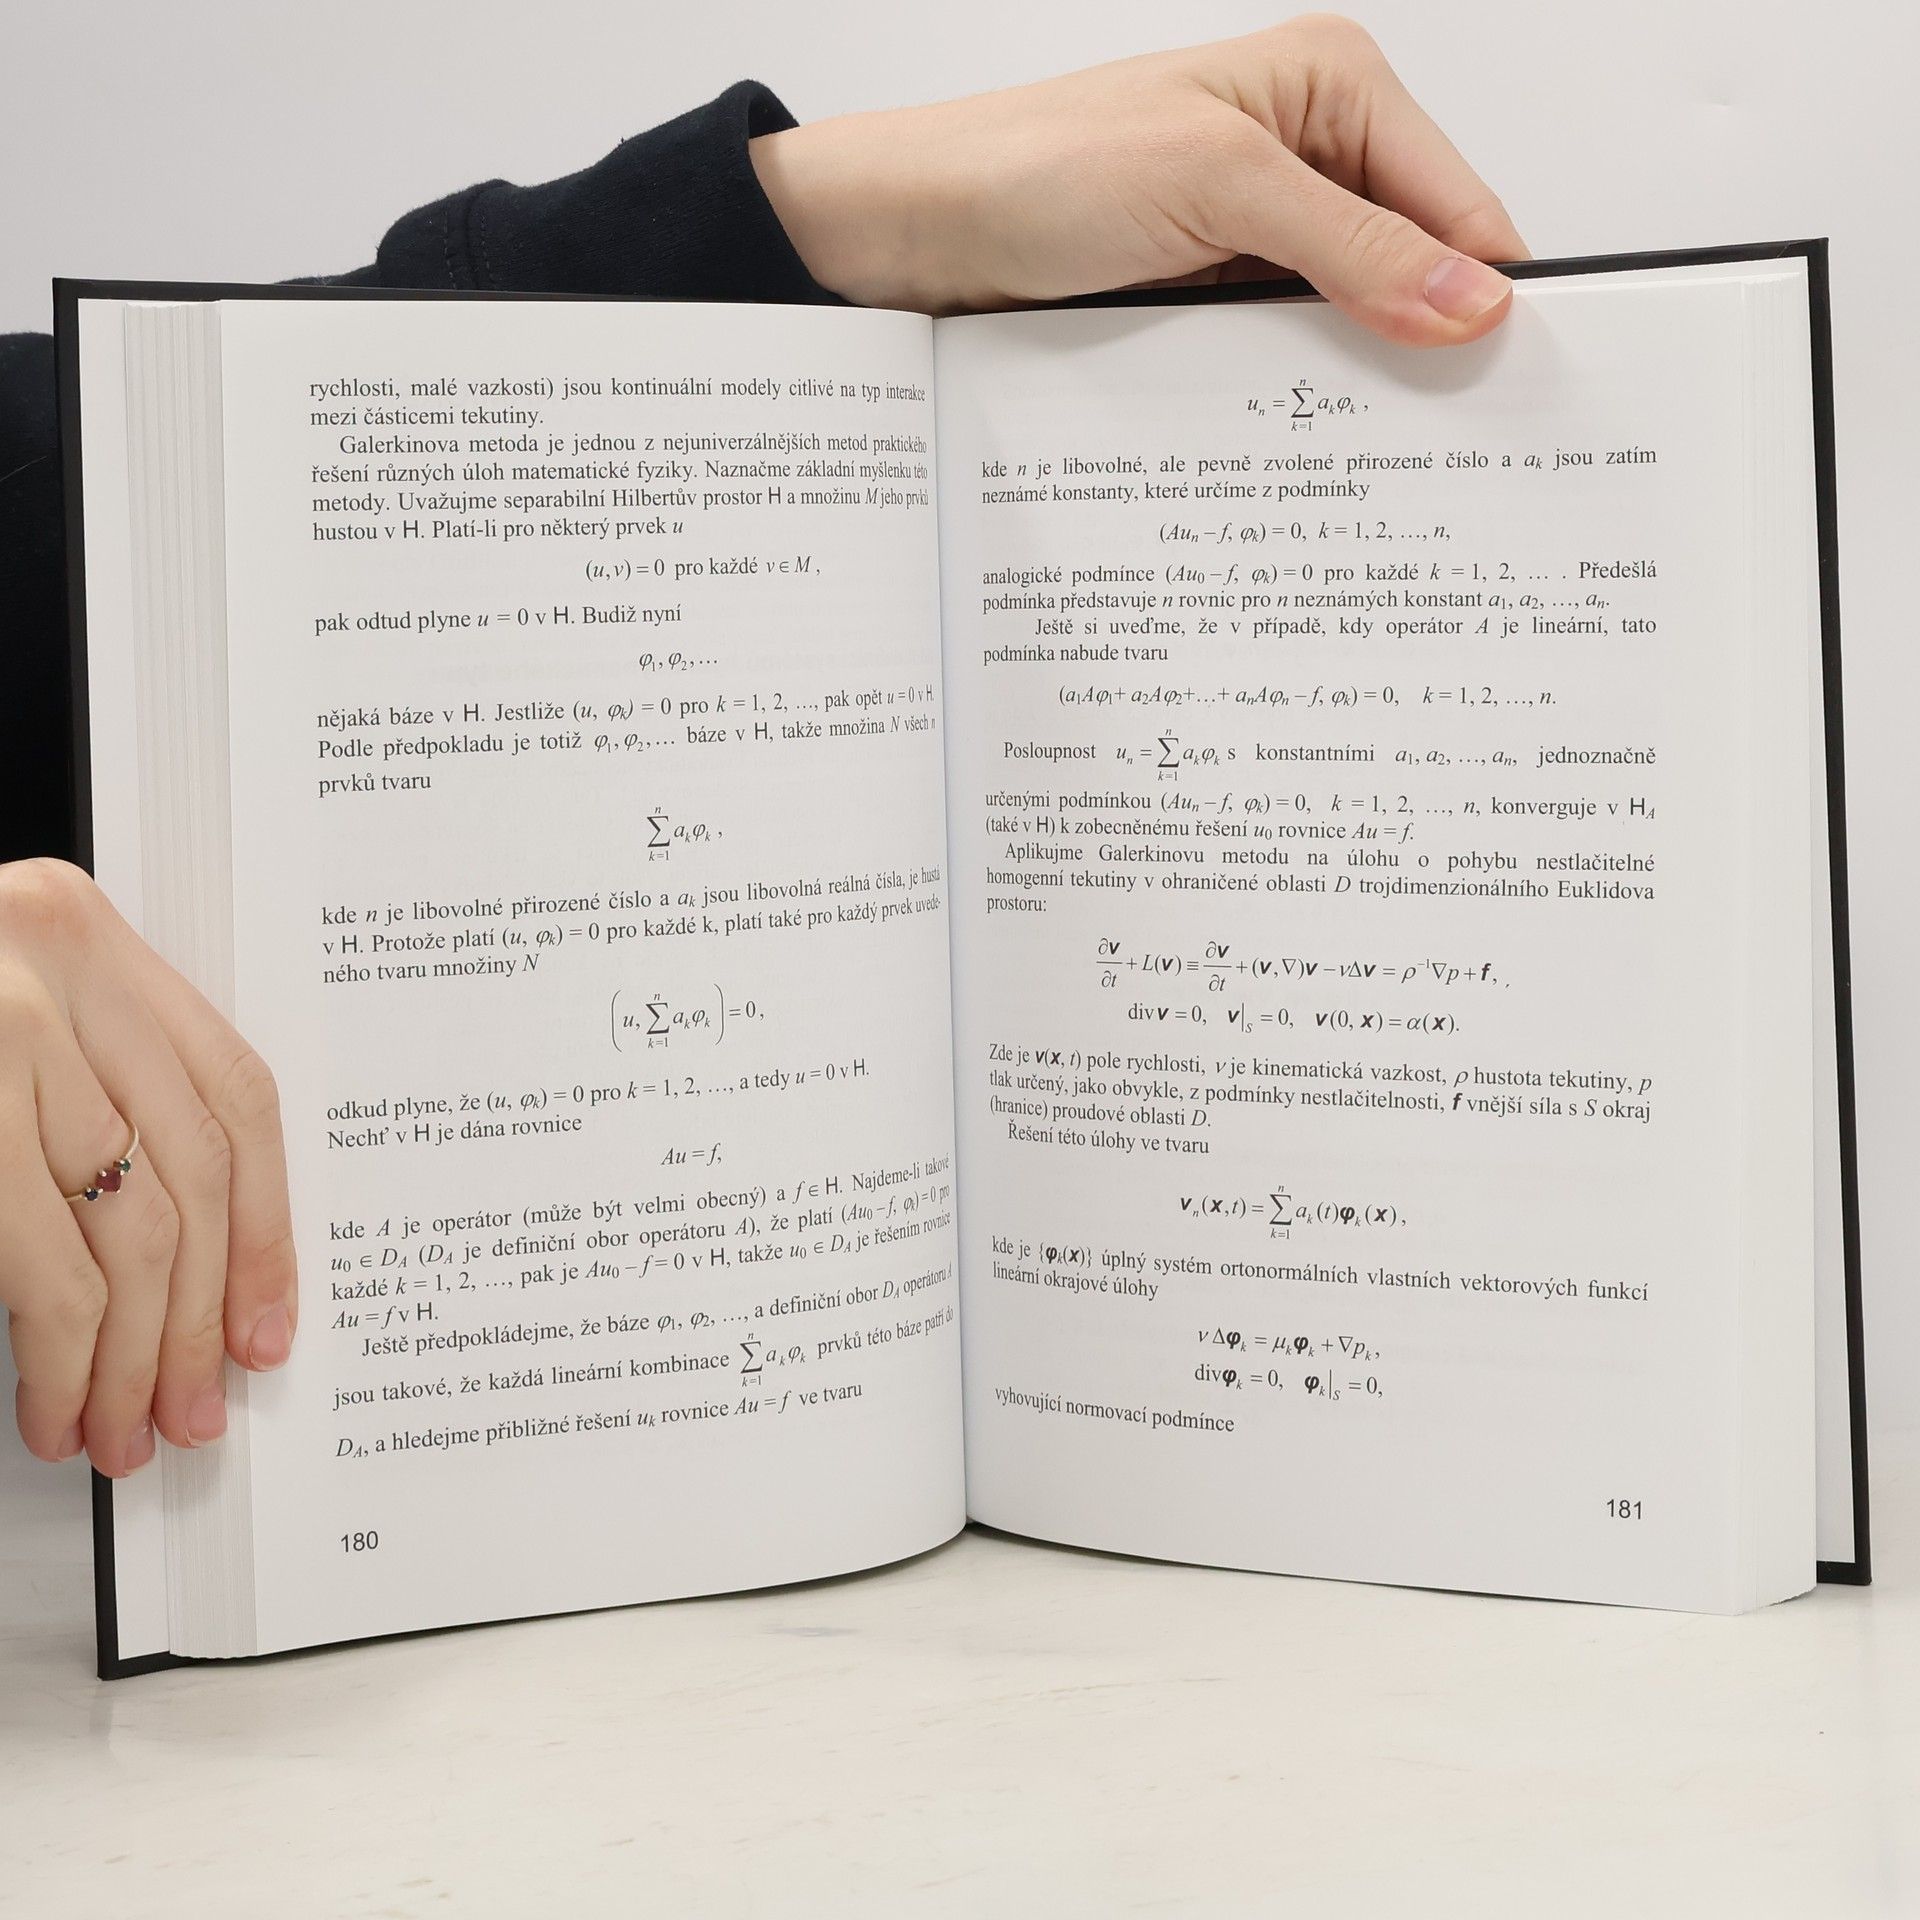 rychlosti, malé vazkosti) jsou kontinuální modely citlivé na typ interakce
mezi částicemi tekutiny.
Galerkinova metoda je jednou z nejuniverzálnějších metod praktického
řešení různých úloh matematické fyziky. Naznačme základní myšlenku této
metody. Uvažujme separabilní Hilbertův prostor H a množinu M jeho prvků
hustou v H. Platí-li pro některý prvek u
(u, v) = 0 pro každé v ∈ M ,
pak odtud plyne u = 0 v H. Budiž nyní
φ₁, φ₂, …
nějaká báze v H. Jestliže (u, φₖ) = 0 pro k = 1, 2, …, pak opět u = 0 v H.
Podle předpokladu je totiž φ₁, φ₂,… báze v H, takže množina N všech n
prvků tvaru
∑ₖ₌₁ⁿ aₖφₖ ,
kde n je libovolné přirozené číslo a aₖ jsou libovolná reálná čísla, je hustá
v H. Protože platí (u, φₖ) = 0 pro každé k, platí také pro každý prvek uvede-
ného tvaru množiny N
(u, ∑ₖ₌₁ⁿ aₖφₖ) = 0,
odkud plyne, že (u, φₖ) = 0 pro k = 1, 2, …, a tedy u = 0 v H.
Nechť v H je dána rovnice
Au = f,
kde A je operátor (může být velmi obecný) a f ∈ H. Najdeme-li takové
u₀ ∈ D_A (D_A je definiční obor operátoru A), že platí (Au₀ – f, φₖ) = 0 pro
každé k = 1, 2, …, pak je Au₀ – f = 0 v H, takže u₀ ∈ D_A je řešením rovnice
Au = f v H.
Ještě předpokládejme, že báze φ₁, φ₂, …, a definiční obor D_A operátoru A
jsou takové, že každá lineární kombinace ∑ₖ₌₁ⁿ aₖφₖ prvků této báze patří do
D_A, a hledejme přibližné řešení uₖ rovnice Au = f ve tvaru
180
uₙ = ∑ₖ₌₁ⁿ aₖφₖ ,
kde n je libovolné, ale pevně zvolené přirozené číslo a aₖ jsou zatím
neznámé konstanty, které určíme z podmínky
(Auₙ – f, φₖ) = 0, k = 1, 2, …, n,
analogické podmínce (Au₀ – f, φₖ) = 0 pro každé k = 1, 2, … . Předešlá
podmínka představuje n rovnic pro n neznámých konstant a₁, a₂, …, aₙ.
Ještě si uveďme, že v případě, kdy operátor A je lineární, tato
podmínka nabude tvaru
(a₁Aφ₁+ a₂Aφ₂+…+ aₙAφₙ – f, φₖ) = 0, k = 1, 2, …, n.
Posloupnost uₙ = ∑ₖ₌₁ⁿ aₖφₖ s konstantními a₁, a₂, …, aₙ, jednoznačně
určenými podmínkou (Auₙ – f, φₖ) = 0, k = 1, 2, …, n, konverguje v H_A
(také v H) k zobecněnému řešení u₀ rovnice Au = f.
Aplikujme Galerkinovu metodu na úlohu o pohybu nestlačitelné
homogenní tekutiny v ohraničené oblasti D trojdimenzionálního Euklidova
prostoru:
∂v/∂t + L(v) ≡ ∂v/∂t + (v, ∇)v – νΔv = ρ⁻¹∇p + f, ,
div v = 0, v|_S = 0, v(0, x) = α(x).
Zde je v(x, t) pole rychlosti, ν je kinematická vazkost, ρ hustota tekutiny, p
tlak určený, jako obvykle, z podmínky nestlačitelnosti, f vnější síla s S okraj
(hranice) proudové oblasti D.
Řešení této úlohy ve tvaru
vₙ(x,t) = ∑ₖ₌₁ⁿ aₖ(t)φₖ(x),
kde je {φₖ(x)} úplný systém ortonormálních vlastních vektorových funkcí
lineární okrajové úlohy
ν Δφₖ = μₖφₖ + ∇pₖ,
divφₖ = 0, φₖ|_S = 0,
vyhovující normovací podmínce
181